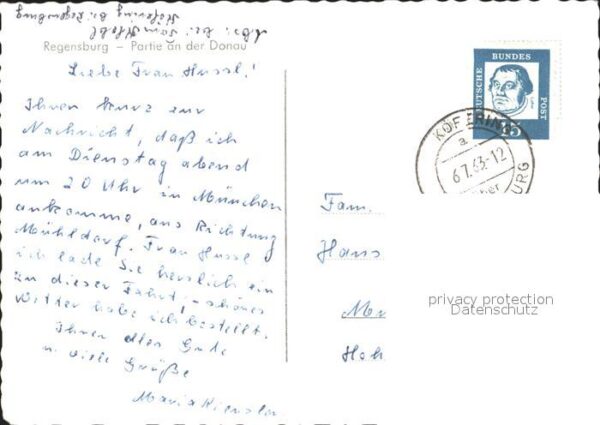 Abs. bei
Köfering bei Regensburg
Regensburg – Partie an der Donau
Liebe Frau Hussl!
Ihnen kurz zur
Nachricht, daß ich
am Dienstag abend
um 20 Uhr in München
ankomme, aus Richtung
Mühldorf. Frau Hussl
ich lade Sie herzlich ein
zu dieser Fahrt, schönes
Wetter habe ich bestellt.
Ihnen alles Gute
u. viele Grüße
Maria
DEUTSCHE BUNDES POST
15
KÖFERING
a
6.7.63-12
Fam.
Hans
privacy protection
Datenschutz